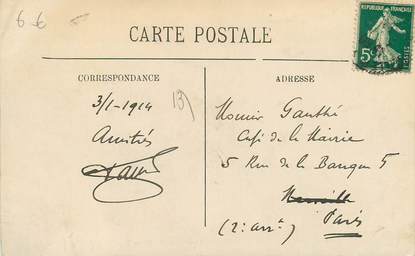 6 6
CARTE POSTALE
REPUBLIQUE FRANÇAISE
5c
POSTES
CORRESPONDANCE
ADRESSE
3/1-1914
Amitiés
Monsieur Gauthé
Café de la Mairie
5 Rue de la Banque 5
Paris
(2e arrt)